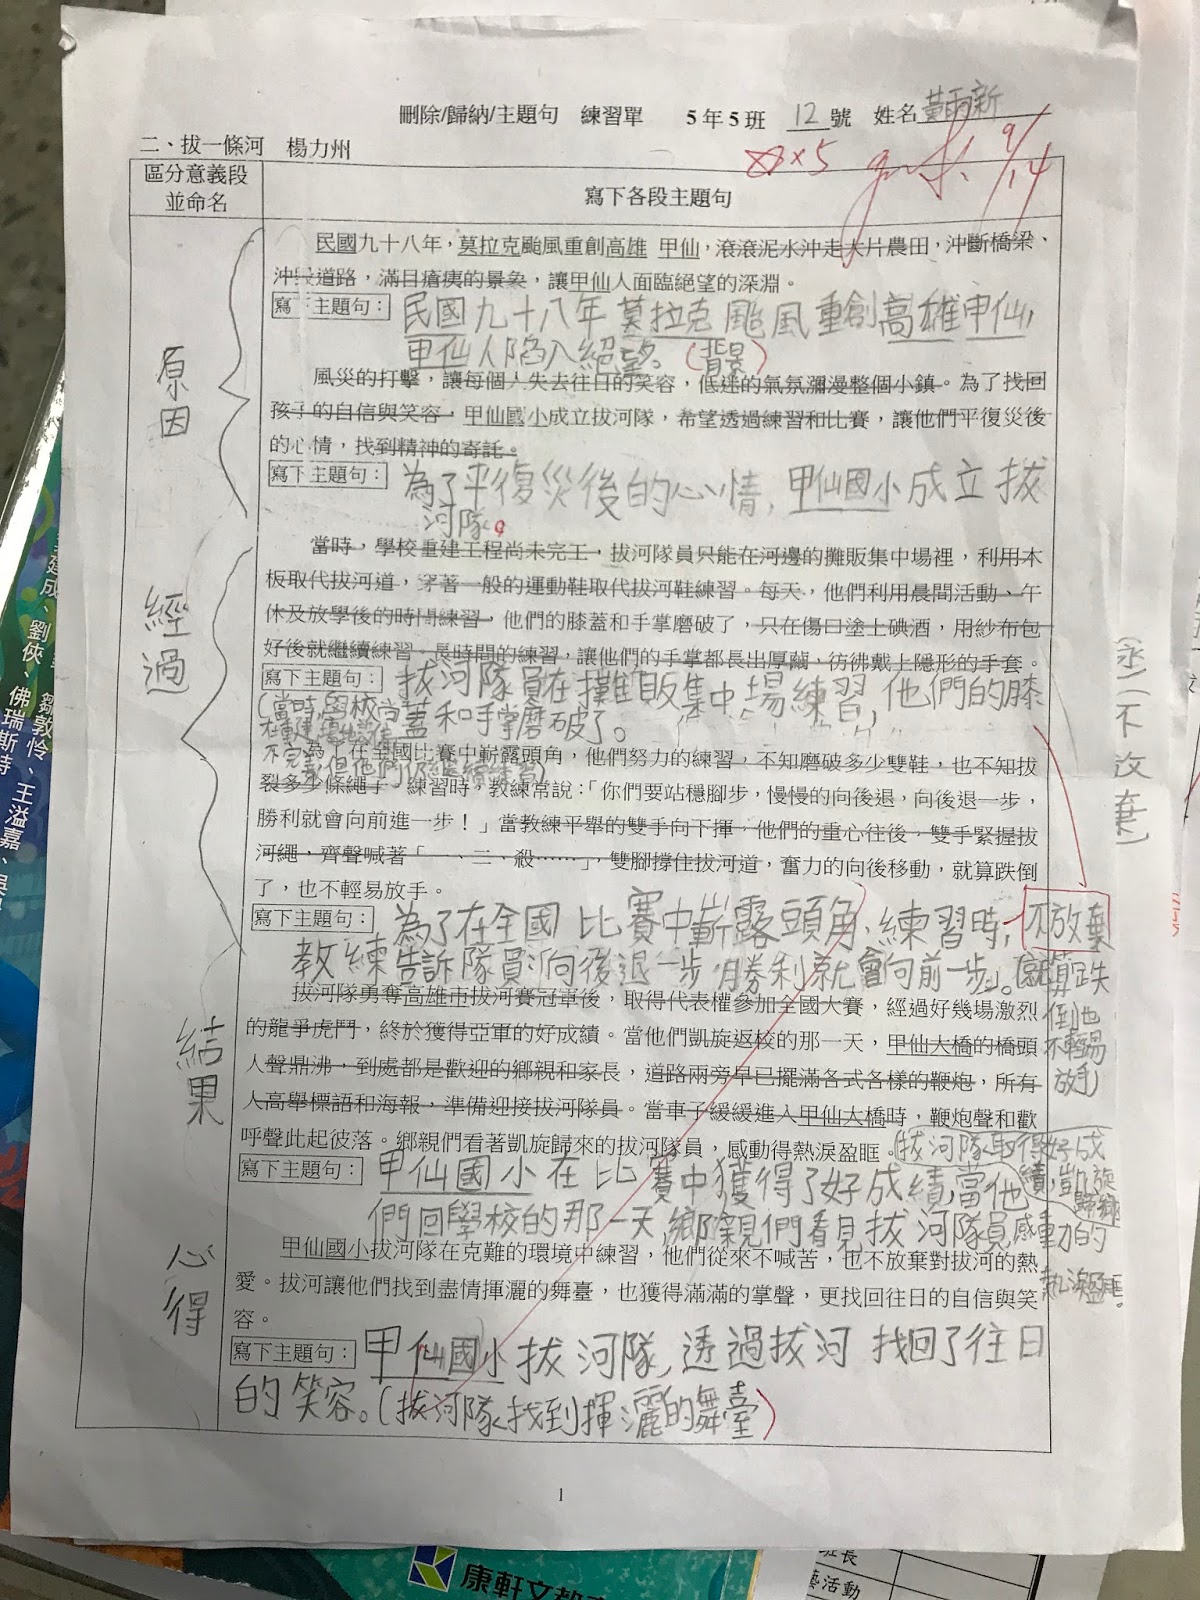 刪除/歸納/主題句　練習單　5年5班　12號　姓名黃雨新
二、拔一條河　楊力州
×5
9/14
區分意義段
並命名
寫下各段主題句
原因
民國九十八年，莫拉克颱風重創高雄 甲仙，滾滾泥水沖走大片農田，沖斷橋梁、
沖毀道路，滿目瘡痍的景象，讓甲仙人面臨絕望的深淵。
寫下主題句：民國九十八年莫拉克颱風重創高雄甲仙，
甲仙人陷入絕望。(背景)
風災的打擊，讓每個人失去往日的笑容，低迷的氣氛瀰漫整個小鎮。為了找回
孩子的自信與笑容，甲仙國小成立拔河隊，希望透過練習和比賽，讓他們平復災後
的心情，找到精神的寄託。
寫下主題句：為了平復災後的心情，甲仙國小成立拔
河隊。
經過
當時，學校重建工程尚未完工，拔河隊員只能在河邊的攤販集中場裡，利用木
板取代拔河道，穿著一般的運動鞋取代拔河鞋練習。每天，他們利用晨間活動、午
休及放學後的時間練習，他們的膝蓋和手掌磨破了，只在傷口塗上碘酒，用紗布包
好後就繼續練習。長時間的練習，讓他們的手掌都長出厚繭，彷彿戴上隱形的手套。
寫下主題句：拔河隊員在攤販集中場練習，他們的膝
蓋和手掌磨破了。
為了在全國比賽中嶄露頭角，他們努力的練習，不知磨破多少雙鞋，也不知拔
裂多少條繩子。練習時，教練常說：「你們要站穩腳步，慢慢的向後退，向後退一步，
勝利就會向前進一步！」當教練平舉的雙手向下揮，他們的重心往後，雙手緊握拔
河繩，齊聲喊著「一、二、殺……」，雙腳撐住拔河道，奮力的向後移動，就算跌倒
了，也不輕易放手。
寫下主題句：為了在全國比賽中嶄露頭角，練習時，不放棄
教練告訴隊員:「向後退一步，勝利就會向前一步」。(就算跌
倒也
不輕易
放手)
(不放棄)
結果
拔河隊勇奪高雄市拔河賽冠軍後，取得代表權參加全國大賽，經過好幾場激烈
的龍爭虎鬥，終於獲得亞軍的好成績。當他們凱旋返校的那一天，甲仙大橋的橋頭
人聲鼎沸，到處都是歡迎的鄉親和家長，道路兩旁早已擺滿各式各樣的鞭炮，所有
人高舉標語和海報，準備迎接拔河隊員。當車子緩緩進入甲仙大橋時，鞭炮聲和歡
呼聲此起彼落。鄉親們看著凱旋歸來的拔河隊員，感動得熱淚盈眶。
拔河隊取得好成
績，凱旋
歸鄉
寫下主題句：甲仙國小在比賽中獲得了好成績，當他
們回學校的那一天鄉親們看見拔河隊員感動的
熱淚盈眶。
心得
甲仙國小拔河隊在克難的環境中練習，他們從來不喊苦，也不放棄對拔河的熱
愛。拔河讓他們找到盡情揮灑的舞臺，也獲得滿滿的掌聲，更找回往日的自信與笑
容。
寫下主題句：甲仙國小拔河隊，透過拔河 找回了往日
的笑容。(拔河隊找到揮灑的舞臺)
1
康軒文教
班長
藝活動
建成、劉俠、佛瑞斯特
鄒敦怜、王溢嘉、